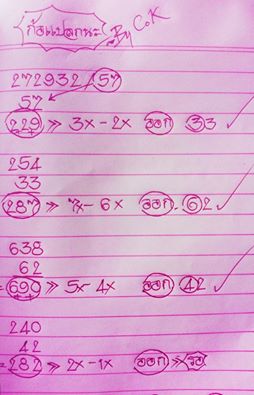 ก้อแปลกนะ By C.K
272932/57
57
229 » 3x-2x ออก 33 ✓
254
33
287 » 7x-6x ออก 62 ✓
638
62
=690 » 5x-4x ออก 42 ✓
240
42
=282 » 2x-1x ออก » รอ